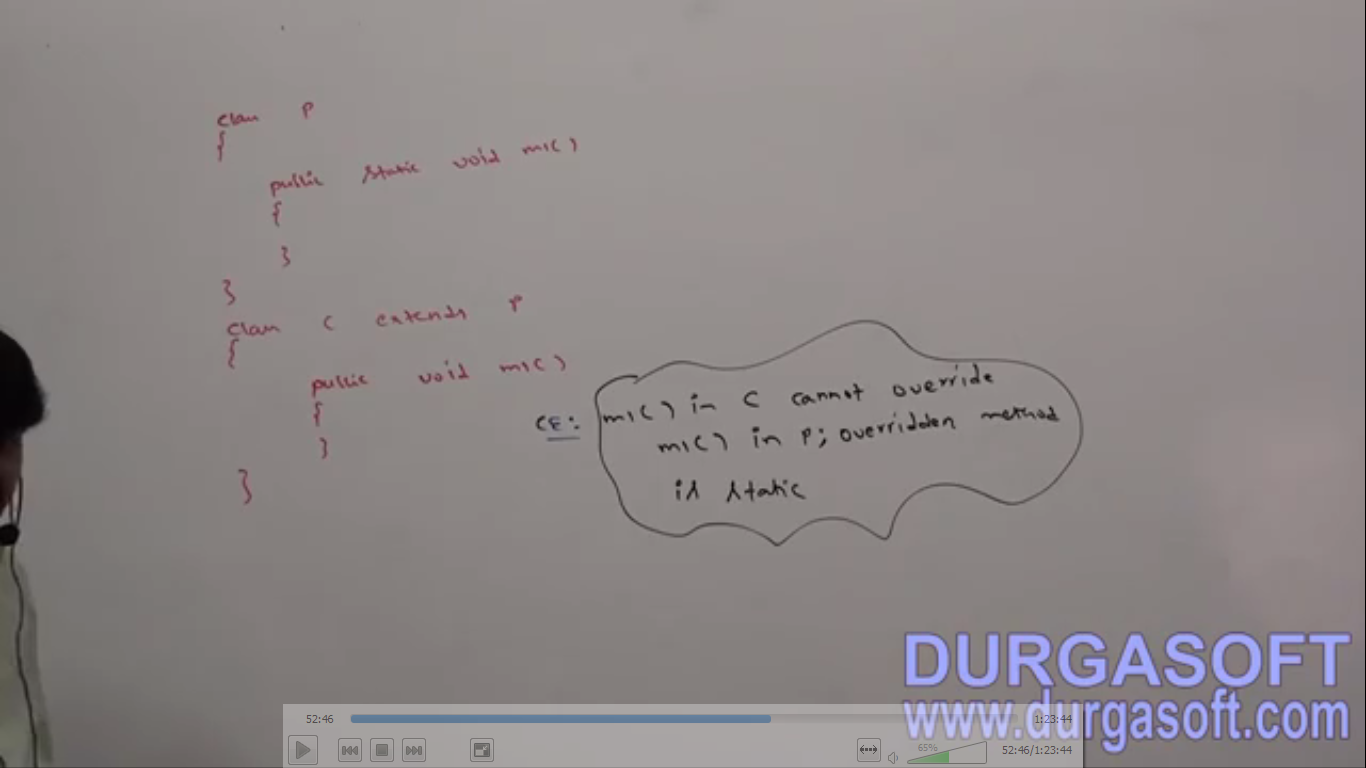 class P
{
public static void m1()
{
}
}
class C extends P
{
public void m1()
{
}
}
CE: m1() in C cannot override
m1() in P; overridden method
is static
DURGASOFT
www.durgasoft.com
52:46
1:23:44
65%
52:46/1:23:44